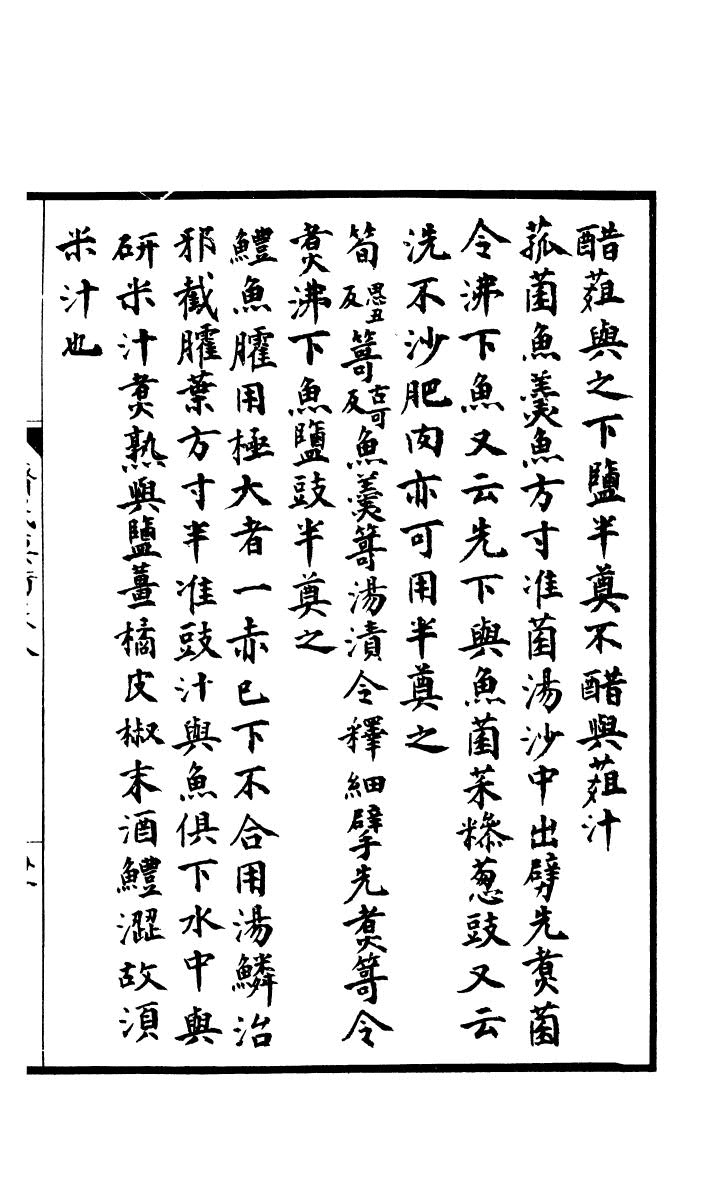 醋葅與之下鹽半奠不醋與葅汁
菰菌魚羹魚方寸准菌湯沙中出劈先煮菌
令沸下魚又云先下與魚菌茱糝葱豉又云
洗不沙肥肉亦可用半奠之
筍思丑反箏古可反魚羹箏湯漬令釋細擘先煮箏令
煮沸下魚鹽豉半奠之
鱧魚臛用極大者一赤已下不合用湯鱗治
邪截臛葉方寸半准豉汁與魚俱下水中與
研米汁煮熟與鹽薑橘皮椒末酒鱧澀故須
米汁也